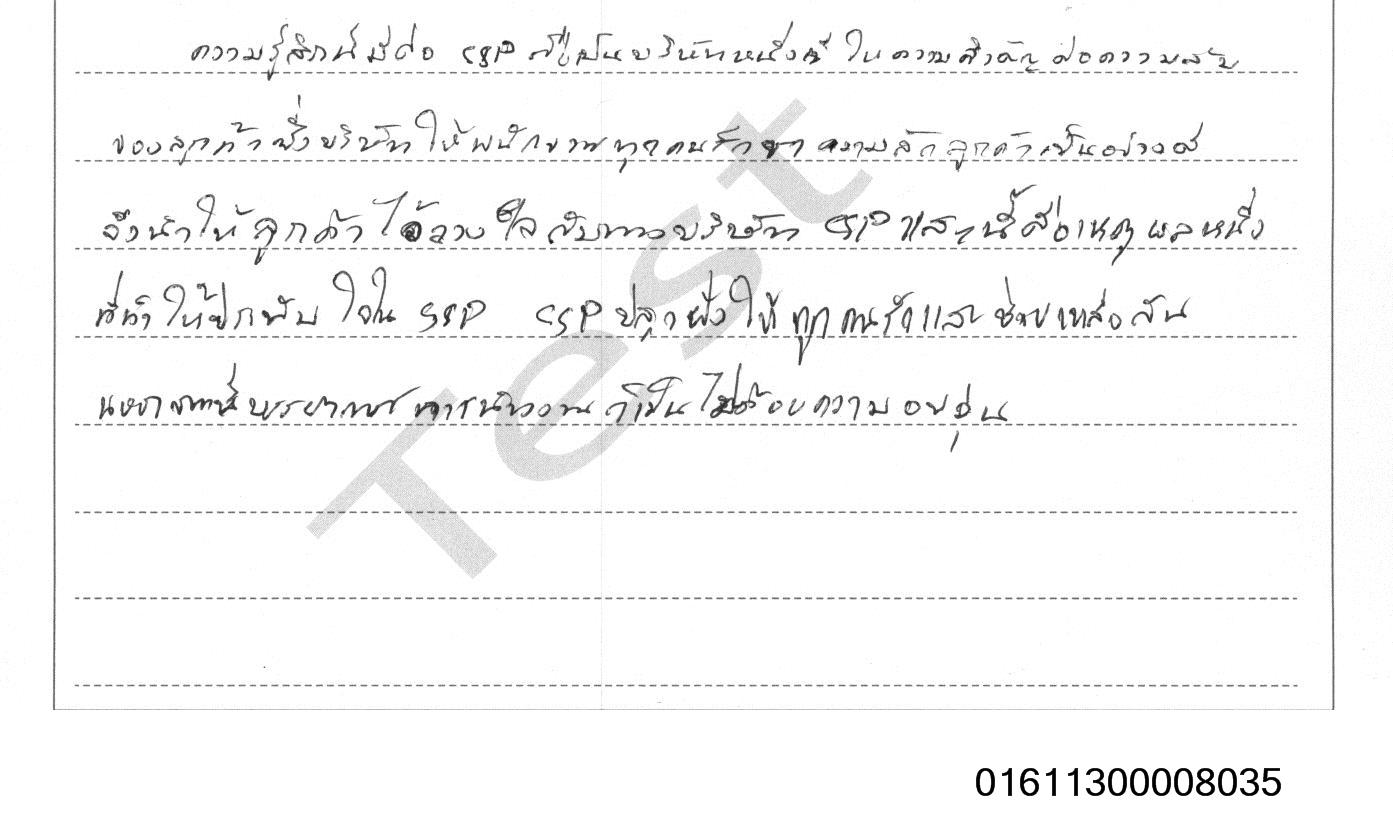 ความรู้สึกที่มีต่อ CSP ก็เป็นบริษัทหนึ่งที่ให้ความสำคัญต่อความลับ
ของลูกค้า ซึ่งบริษัทให้พนักงานทุกคนรักษาความลับลูกค้าเป็นอย่างดี
จึงทำให้ลูกค้าไว้วางใจกับทางบริษัท CSP และนี้คือเหตุผลหนึ่ง
ที่ทำให้ผูกพันใจใน CSP CSP ปลูกฝังให้ทุกคนรักและช่วยเหลือกัน
นอกจากนี้บรรยากาศการทำงานก็เป็นไปด้วยความอบอุ่น
Test
01611300008035